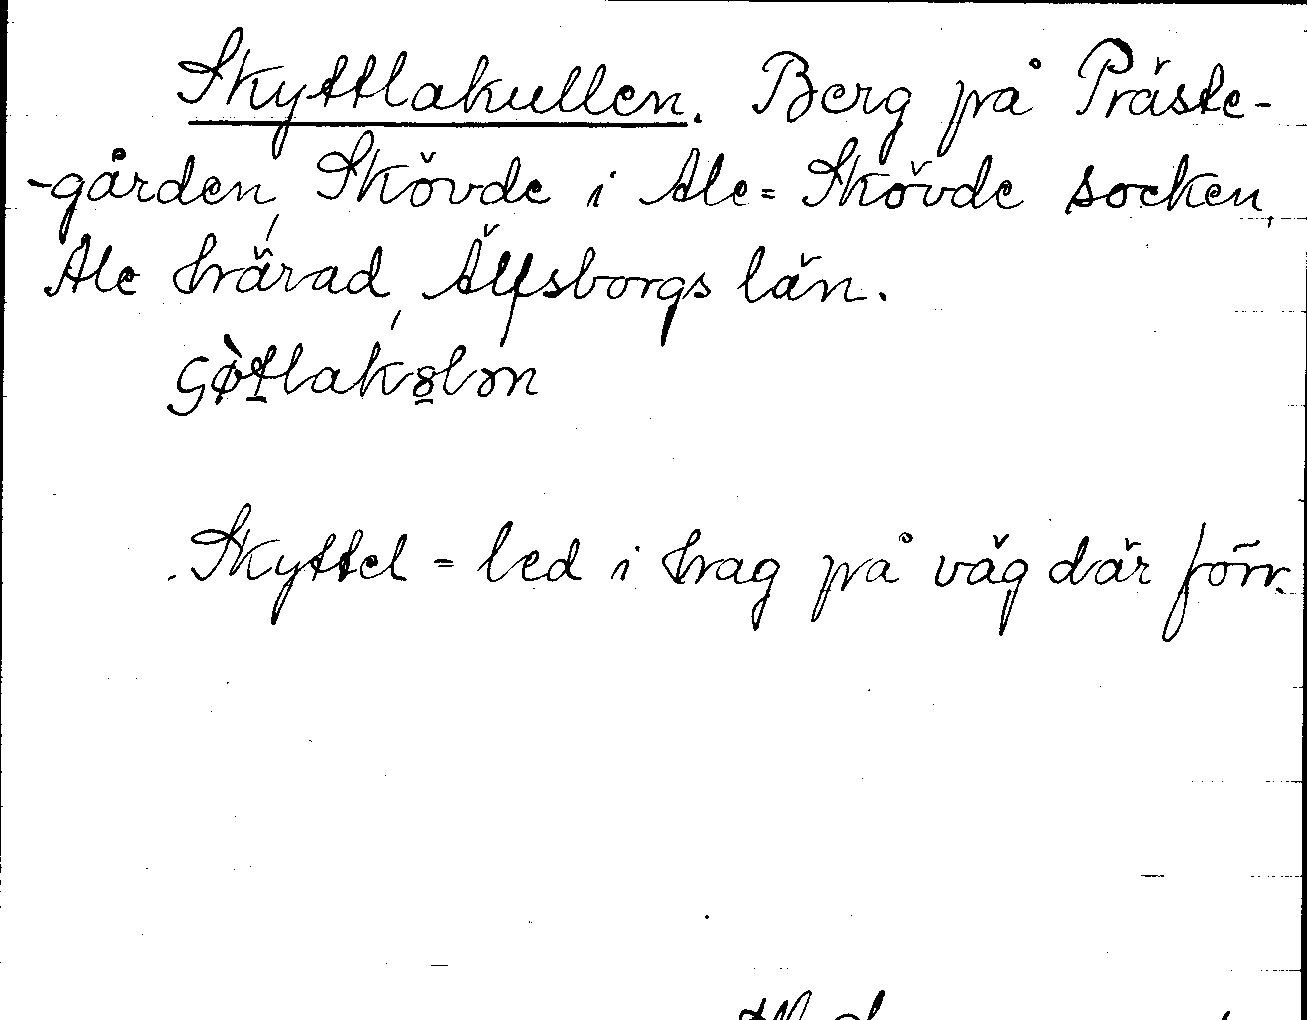 Skyttlakullen. Berg på Präste-
-gården, Skövde i Ale=Skövde socken,
Ale härad, Älfsborgs län.
Skyttel = led i hag på väg där förr.